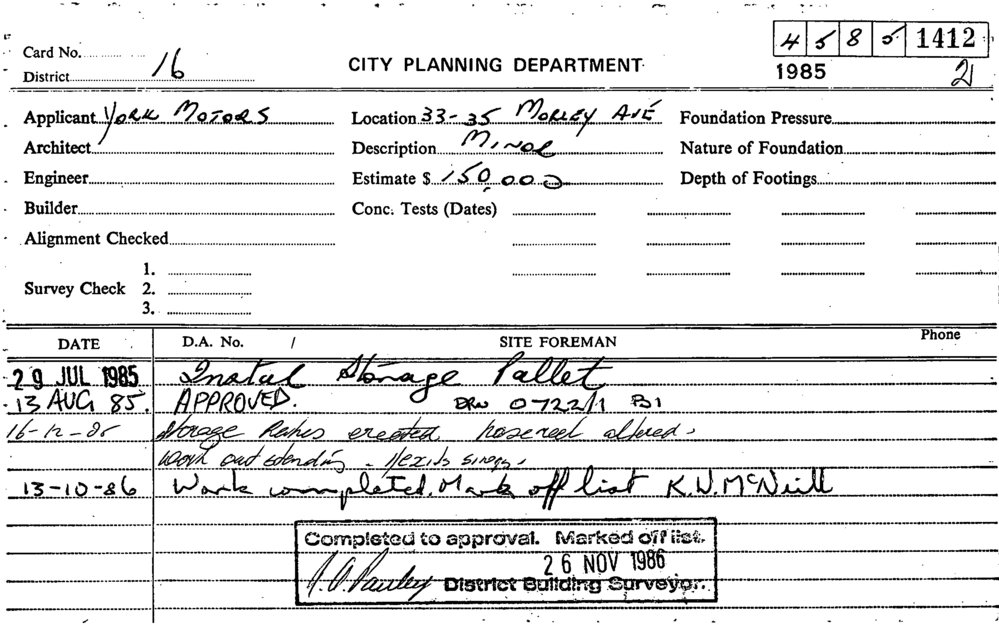 4 5 8 5 1412
Card No.
1985 2
District 16
CITY PLANNING DEPARTMENT
Applicant York Motors Location 33-35 Morley Ave Foundation Pressure
Architect Description Minor Nature of Foundation
Engineer Estimate $ 150,000 Depth of Footings
Builder Conc. Tests (Dates)
Alignment Checked
1.
Survey Check 2.
3.
DATE D.A. No. / SITE FOREMAN Phone
29 JUL 1985 Instal Storage Pallet
13 AUG 85. APPROVED. DRW 0722/1 B1
16-12-85 Storage erected hosereel altered.
work outstanding -
13-10-86 Work completed. Mark off list K.N.McNeill
Completed to approval. Marked off list.
26 NOV 1986
District Building Surveyor.